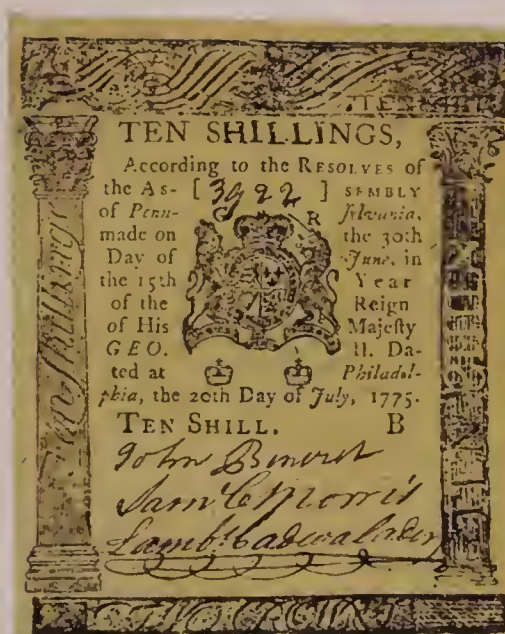 TEN SHILL
TEN SHILLINGS,
According to the RESOLVES of
the As- [ 3922 ] SEMBLY
of Penn- R ſylvania,
made on the 30th
Day of June, in
the 15th Year
of the Reign
of His Majeſty
GEO. II. Da-
ted at Philadel-
phia, the 20th Day of July, 1775.
TEN SHILL. B
John
Saml C Morris
Lambt Cadwalader
Ten Shillings